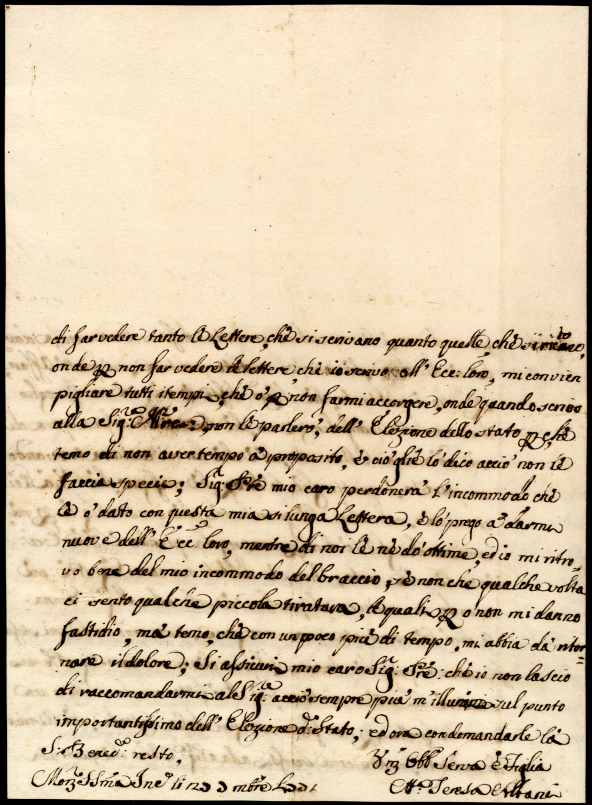 di far vedere tanto le Lettere, che si scrivano quanto quelle che si
onde p non far vedere le lettere che io scrivo all' Ecc: loro, mi convien
pigliare tutti i tempi, che ò p non farmi accorgere, onde quando scrivo
alla Sig:ra non le parlerò, dell' Elezione dello stato p che
temo di non aver tempo à proposito, e ciò gle lo dico acciò non le
faccia specie; Sig: P're mio caro perdonerà l'incommodo che
le ò dato con questa mia si lunga Lettera, e lo prego à darmi
nuove dell' Ecc: loro, mentre di noi le ne dò ottime, ed io mi ritro=
vo bene del mio incommodo del braccio, se non che qualche volta
ci sento qualche piccola tiratura, le quali p o non mi danno
fastidio, mà temo, che con un poco più di tempo, mi abbia dà ritor=
nare il dolore; Si assicuri mio caro Sig: P're: che io non lascio
di raccomandarmi al Sig:re acciò sempre più m'illumini sul punto
importantissimo dell' Elezione d: Stato; ed ora con domandarle la
S: Bened: resto,
Obb: Serva e Figlia
Ma: Teresa Albani